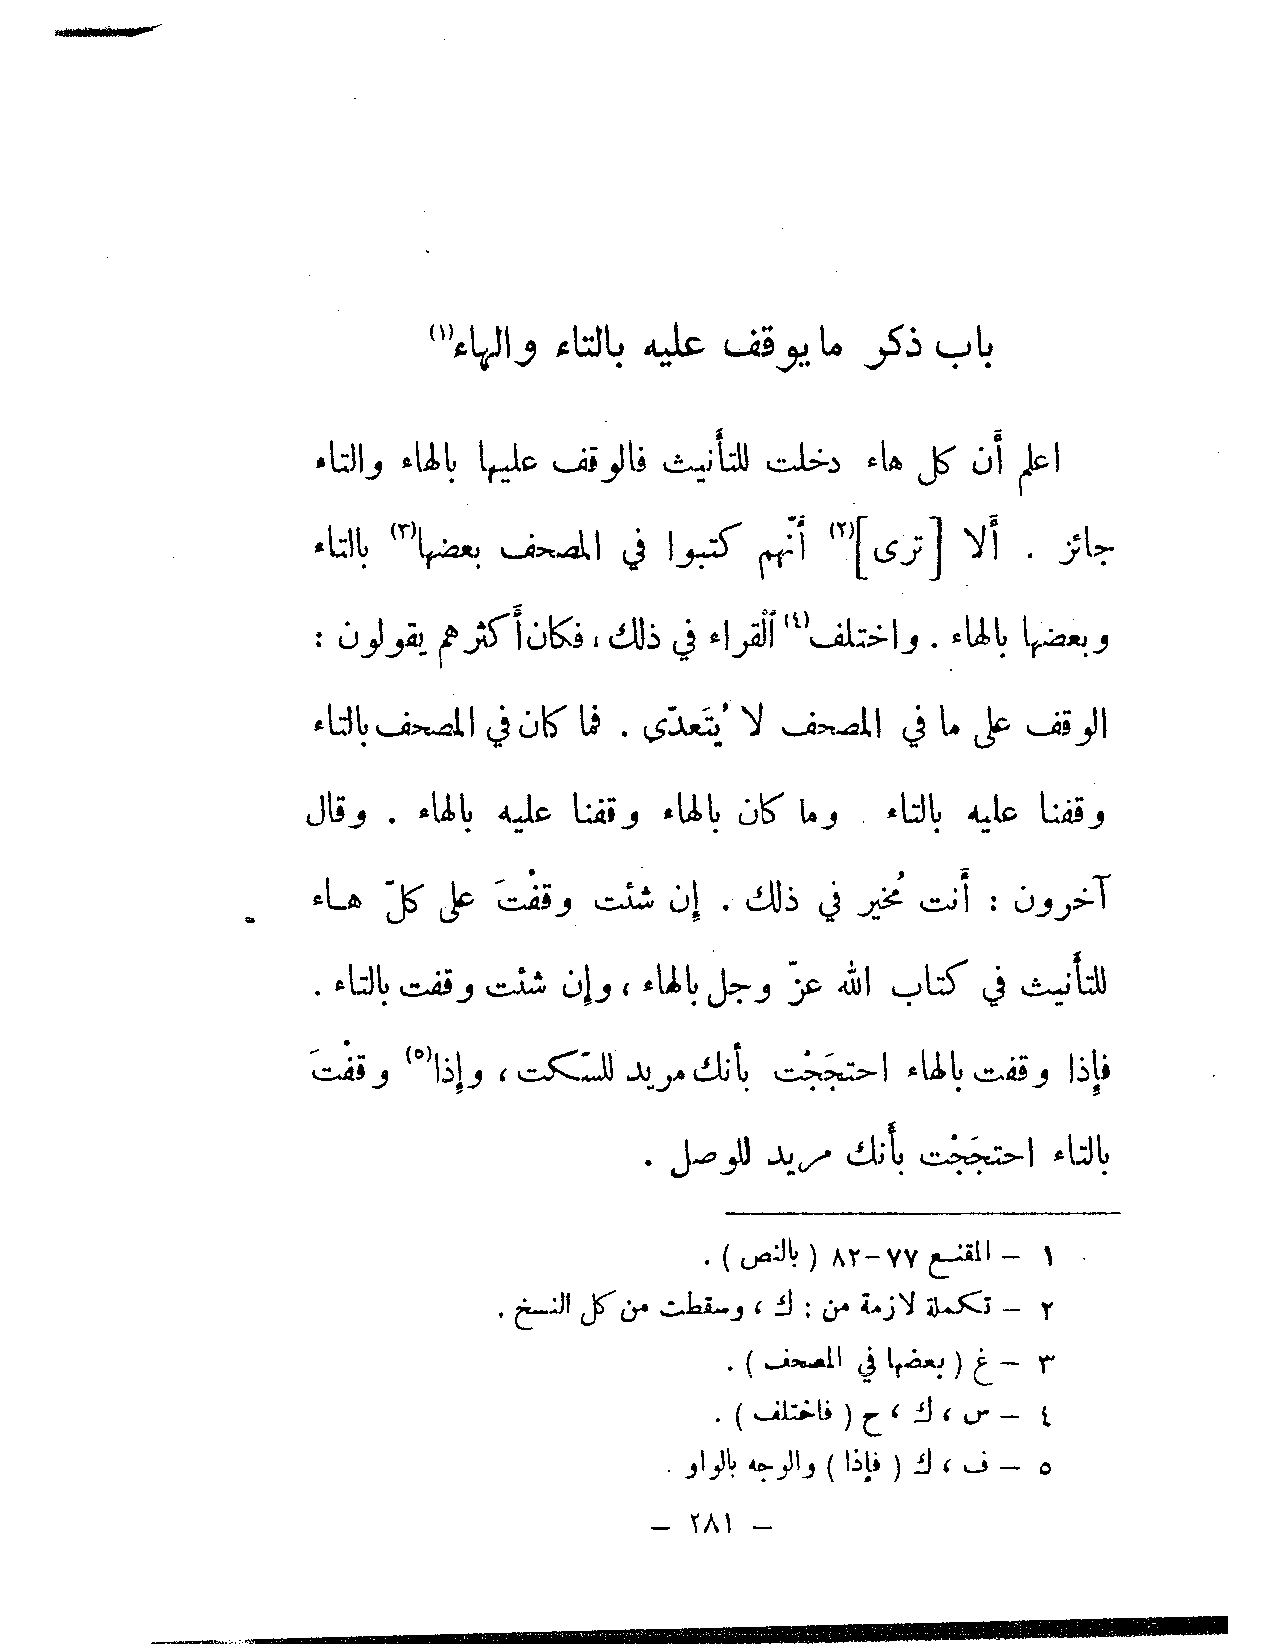 باب ذكر ما يوقف عليه بالتاء والهاء(١)
اعلم أَن كل هاء دخلت للتأنيث فالوقف عليها بالهاء والتاء
جائز . أَلا [ترى](٢) أَنّهم كتبوا في المصحف بعضها(٣) بالتاء
وبعضها بالهاء . واختلف(٤) القراء في ذلك ، فكان أَكثرهم يقولون :
الوقف على ما في المصحف لا يُتَعدّى . فما كان في المصحف بالتاء
وقفنا عليه بالتاء . وما كان بالهاء وقفنا عليه بالهاء . وقال
آخرون : أَنت مُخير في ذلك . إن شئت وقفْتَ على كلّ هاء
للتأنيث في كتاب الله عزّ وجل بالهاء ، وإن شئت وقفت بالتاء .
فإذا وقفت بالهاء احتجَجْت بأنك مريد للسّكت ، وإذا(٥) وقفْتَ
بالتاء احتجَجْت بأنك مريد للوصل .
١ – المقنع ٧٧–٨٢ ( بالنص ) .
٢ – تكملة لازمة من : ك ، وسقطت من كل النسخ .
٣ – غ ( بعضها في المصحف ) .
٤ – س ، ك ، ح ( فاختلف ) .
٥ – ف ، ك ( فإذا ) والوجه بالواو .
– ٢٨١ –